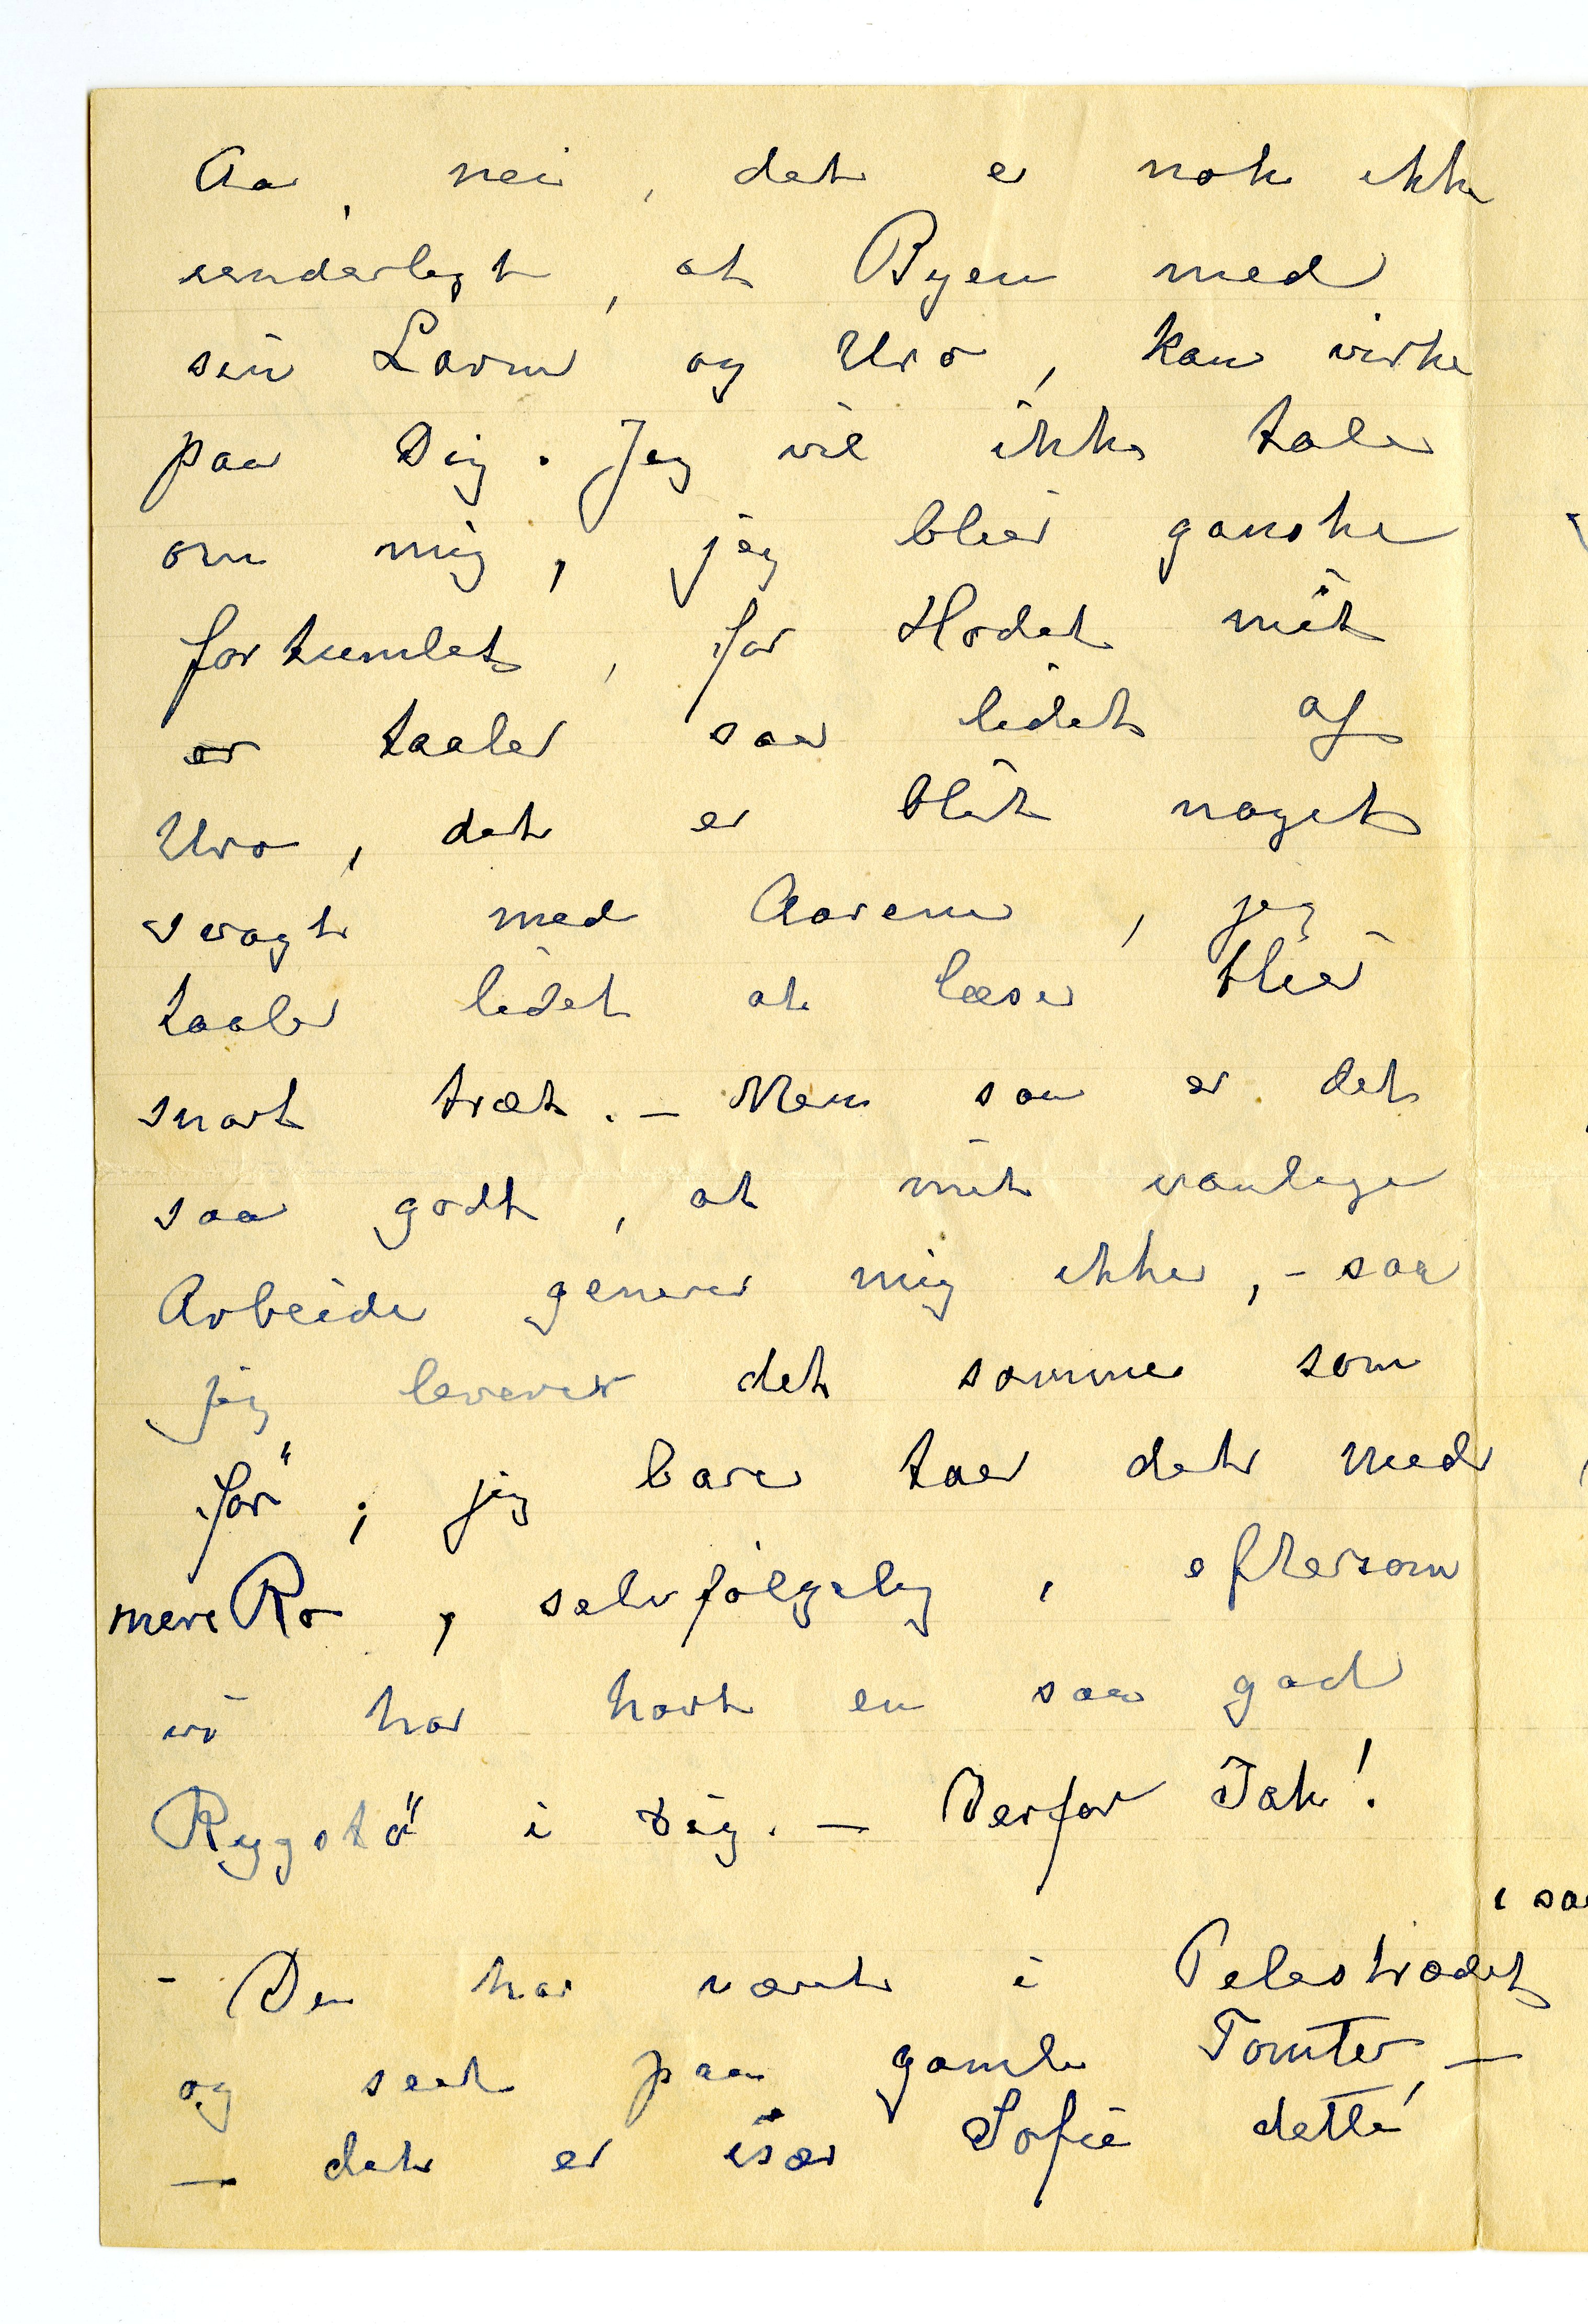 Aa, nei, det er nok ikke
underligt, at Byen med
sin Larm og Uro, kan virke
paa Dig. Jeg vil ikke tale
om mig, jeg blier ganske
fortumlet, for Hodet mit
er taaler saa lidet af
Uro, det er blit noget
svagt med Aarene, jeg
taaler lidet at læse blir
snart træt. – Men saa er det
saa godt, at mit vanlige
Arbeide generer mig ikke, – saa
jeg leverer det samme som
før; jeg bare taer det med
mere Ro, selvfølgelig, eftersom
vi har havt en saa god
Rygstø i Dig. – Derfor Tak!
i saa
– Den har været i Pelestrædet
og seet paa gamle Tomter, –
– det er især Sofie dette